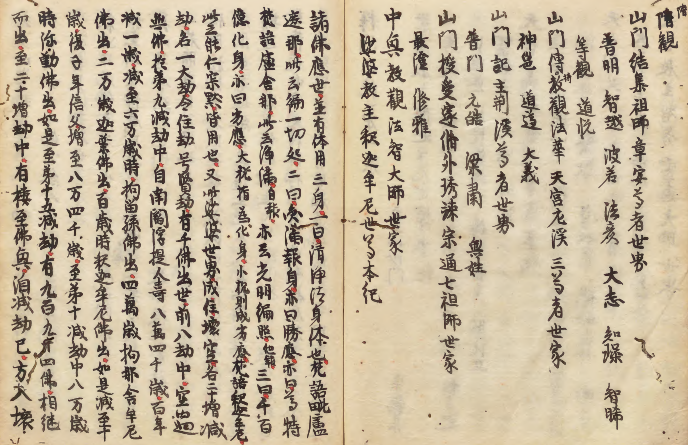 山門結集祖師章安尊者世家
普明 智越 波若 法彥 大志 知璪 智晞
等觀 道悅
山門傳持教觀法華天宮左溪三尊者世家
神邕 道遵 大義
山門記主荊溪尊者世家
普門 元皓 梁肅 與姓
山門授受邃脩外琇竦宗通七祖師世家
最澄 修雅
中興教觀法智大師世家
娑婆教主釋迦牟尼世尊本紀
諸佛應世並有体用三身一曰清淨法身体也梵語毗盧
遮那此云徧一切處二曰圓滿報身亦曰勝應亦曰尊特
梵語盧舍那此云淨滿自報亦云光明徧照他報三曰千百
億化身亦曰劣應大機指為化身小機則成劣應梵語釋迦牟尼
此云能仁寂默皆用也又此娑婆世界成住壞空各二十增減
劫名一大劫今住劫号賢劫有千佛出世前八劫中空過
無佛於第九減劫中自南閻浮提人壽八萬四千歲百年
減一歲減至六万歲時拘留孫佛出四萬歲拘那含牟尼
佛出二万歲迦葉佛出百歲時釋迦牟尼佛出如是減至十
歲復子年倍父增至八万四千歲至第十減劫中八万歲
時弥勒佛出如是至第十五減劫有九百九十四佛相继
而出至二十增劫中有樓至佛興洎減劫已方入壞